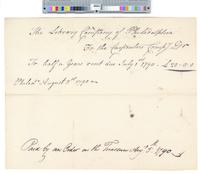 The Library Company of Philadelphia
To the Carpenters Compy Dr
To half a Years rent due July 1st 1790 — £20-0-0
Philada August 3d 1790
Paid by an Order on the Treasurer Augt 1790